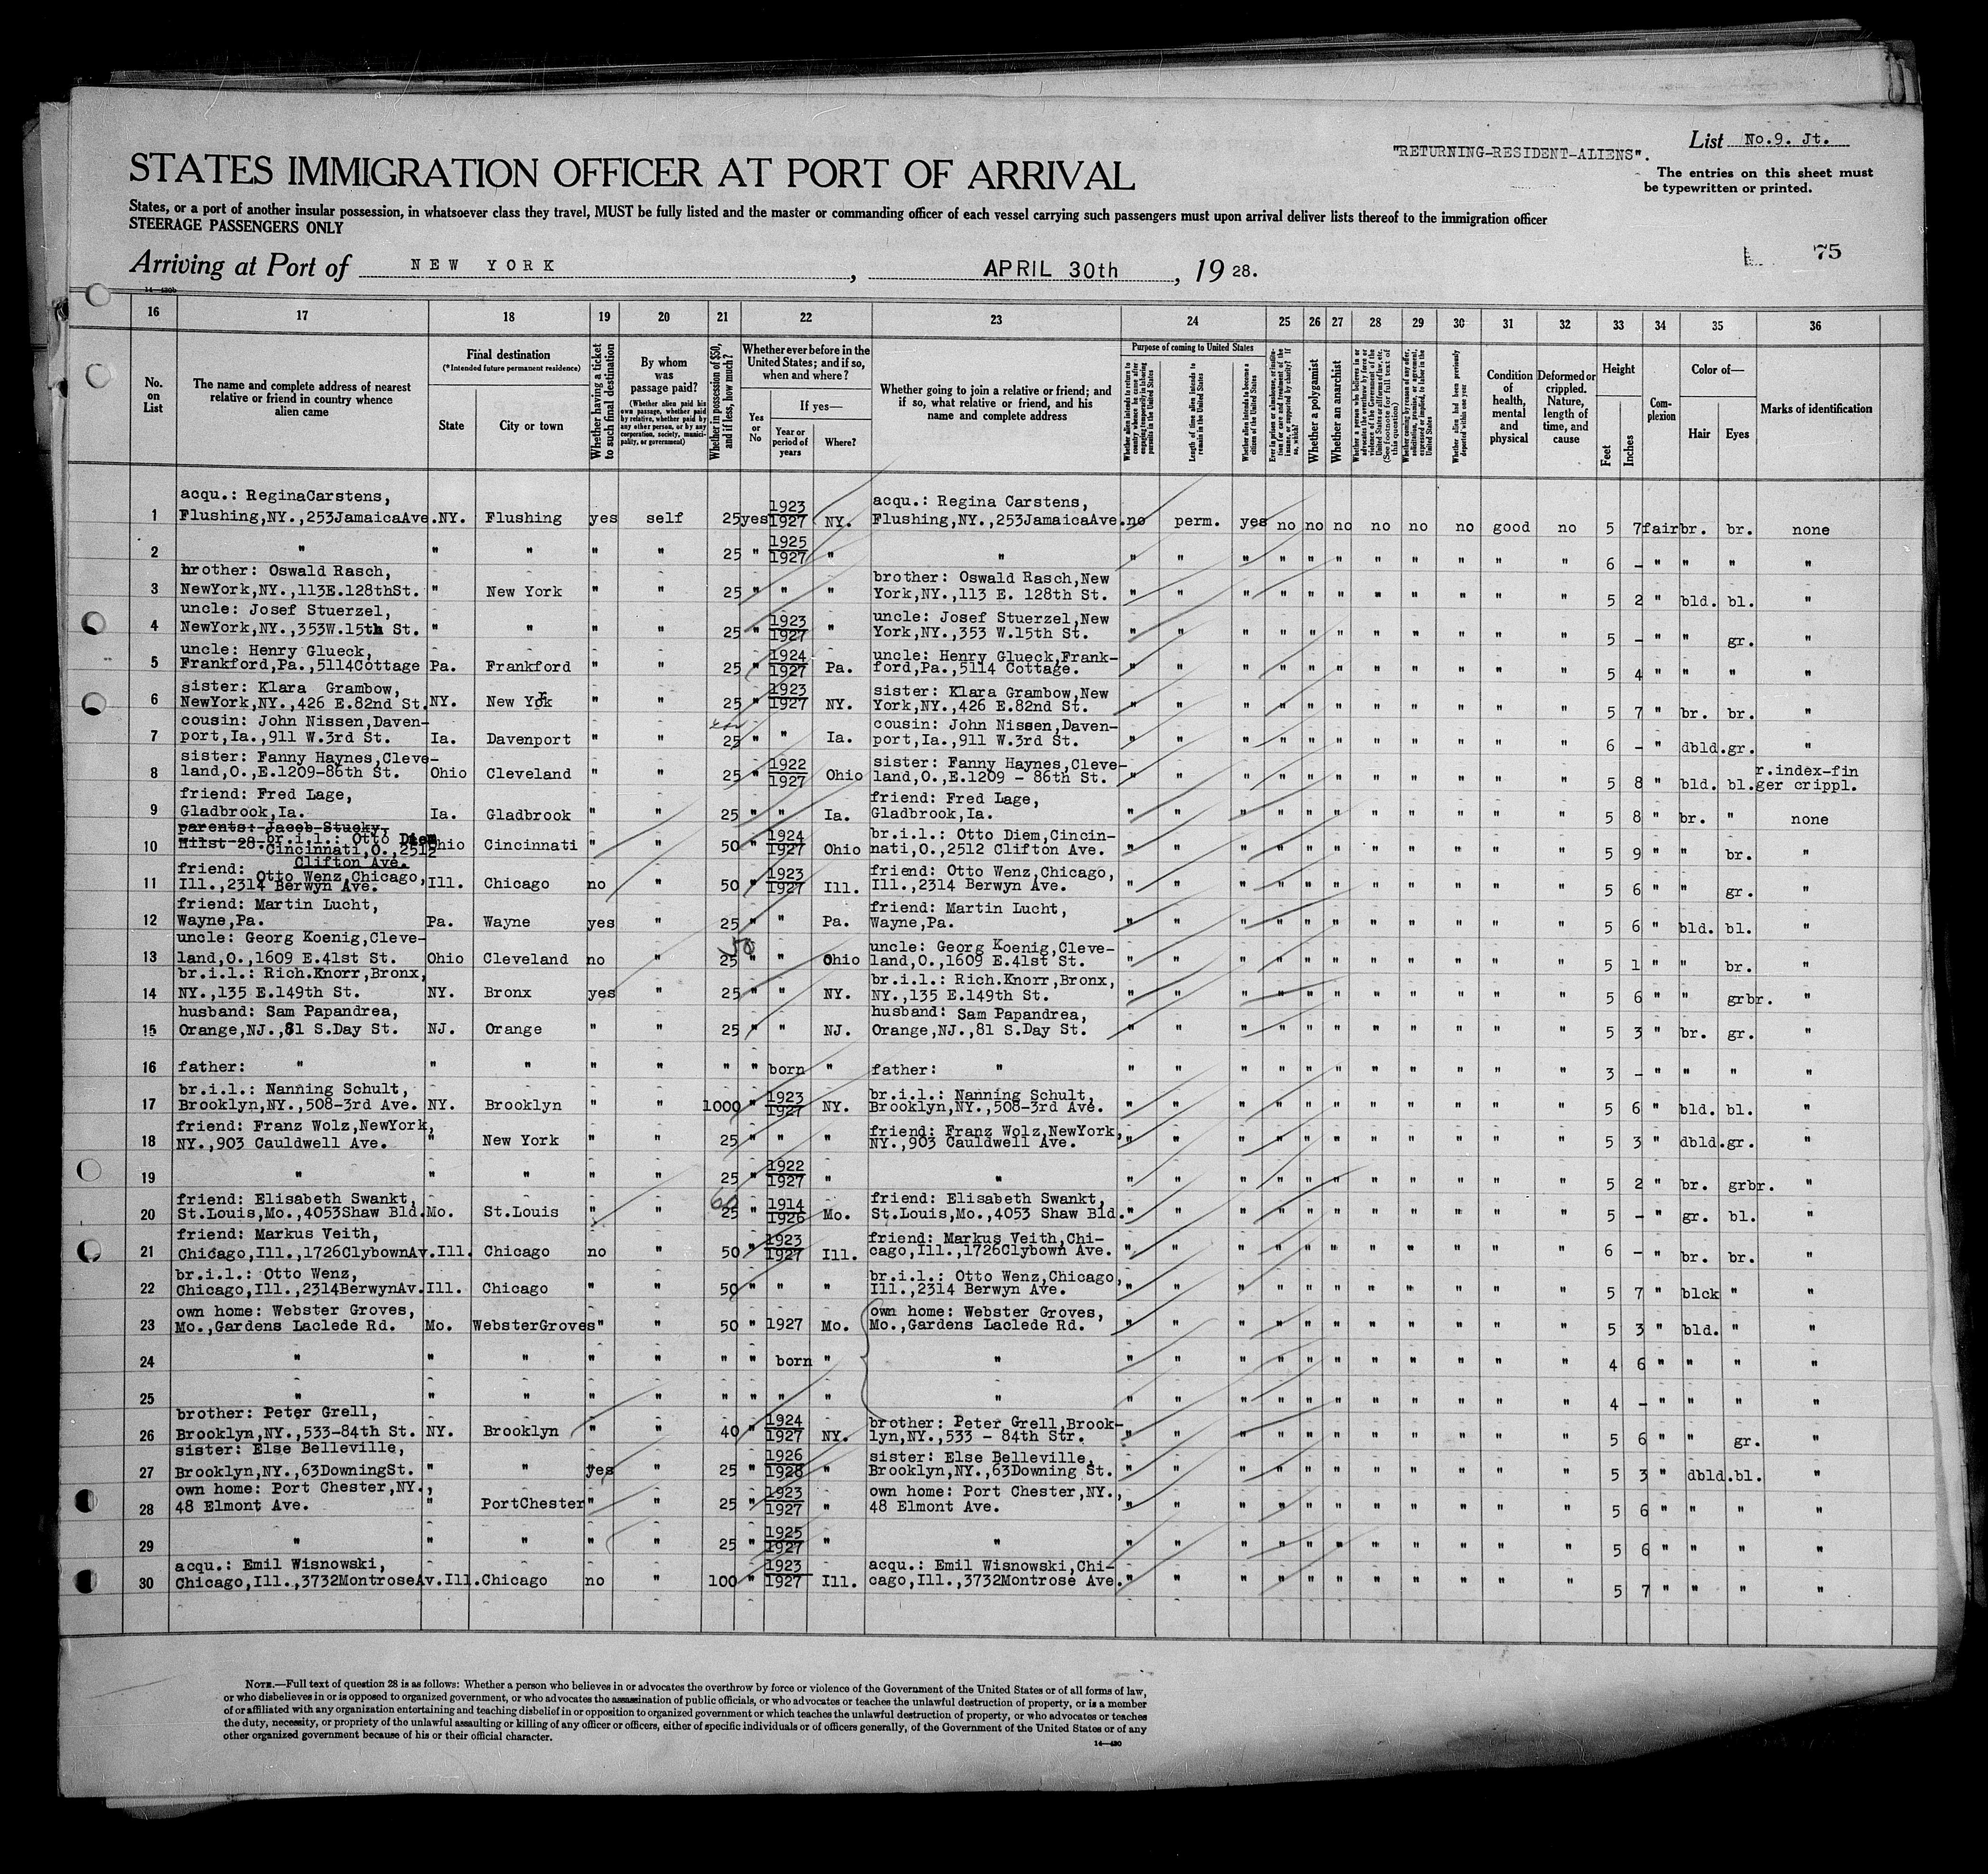 List No.9. Jt.
"RETURNING-RESIDENT-ALIENS".
STATES IMMIGRATION OFFICER AT PORT OF ARRIVAL
The entries on this sheet must
be typewritten or printed.
States, or a port of another insular possession, in whatsoever class they travel, MUST be fully listed and the master or commanding officer of each vessel carrying such passengers must upon arrival deliver lists thereof to the immigration officer
STEERAGE PASSENGERS ONLY
75
Arriving at Port of NEW YORK, APRIL 30th, 19 28.
16 17 18 19 20 21 22 23 24 25 26 27 28 29 30 31 32 33 34 35 36
No. on List
The name and complete address of nearest relative or friend in country whence alien came
Final destination
(*Intended future permanent residence)
State
City or town
Whether having a ticket to such final destination
By whom was passage paid?
(Whether alien paid his own passage, whether paid by relative, whether paid by any other person, or by any corporation, society, municipality, or government)
Whether in possession of $50, and if less, how much?
Whether ever before in the United States; and if so, when and where?
Yes or No
If yes—
Year or period of years
Where?
Whether going to join a relative or friend; and if so, what relative or friend, and his name and complete address
Purpose of coming to United States
Whether alien intends to return to country whence he came after engaging temporarily in laboring pursuits in the United States
Length of time alien intends to remain in the United States
Whether alien intends to become a citizen of the United States
Ever in prison or almshouse, or institution for care and treatment of the insane, or supported by charity? If so, which?
Whether a polygamist
Whether an anarchist
Whether a person who believes in or advocates the overthrow by force or violence of the Government of the United States or all forms of law, etc. (See footnote for full text of this question)
Whether coming by reason of any offer, solicitation, promise, or agreement, expressed or implied, to labor in the United States
Whether alien had been previously deported within one year
Condition of health, mental and physical
Deformed or crippled. Nature, length of time, and cause
Height
Feet
Inches
Complexion
Color of—
Hair
Eyes
Marks of identification
1 acqu.: ReginaCarstens,
Flushing,NY.,253JamaicaAve. NY. Flushing yes self 25 yes 1923 1927 NY. acqu.: Regina Carstens,
Flushing,NY.,253JamaicaAve. no perm. yes no no no no no no good no 5 7 fair br. br. none
2 " " " " " 25 " 1925 1927 " " " " " " " " " " " " " 6 - " " " "
3 brother: Oswald Rasch,
NewYork,NY.,113E.128thSt. " New York " " 25 " " " brother: Oswald Rasch,New
York,NY.,113 E. 128th St. " " " " " " " " " " " 5 2 " bld. bl. "
4 uncle: Josef Stuerzel,
NewYork,NY.,353W.15th St. " " " " 25 " 1923 1927 " uncle: Josef Stuerzel,New
York,NY.,353 W.15th St. " " " " " " " " " " " 5 - " " gr. "
5 uncle: Henry Glueck,
Frankford,Pa.,5114Cottage Pa. Frankford " " 25 " 1924 1927 Pa. uncle: Henry Glueck,Frank-
ford,Pa.,5114 Cottage. " " " " " " " " " " " 5 4 " " " "
6 sister: Klara Grambow,
NewYork,NY.,426 E.82nd St. NY. New York " " 25 " 1923 1927 NY. sister: Klara Grambow,New
York,NY.,426 E.82nd St. " " " " " " " " " " " 5 7 " br. br. "
7 cousin: John Nissen,Daven-
port,Ia.,911 W.3rd St. Ia. Davenport " " 25 " " Ia. cousin: John Nissen,Daven-
port,Ia.,911 W.3rd St. " " " " " " " " " " " 6 - " dbld. gr. "
8 sister: Fanny Haynes,Cleve-
land,O.,E.1209-86th St. Ohio Cleveland " " 25 " 1922 1927 Ohio sister: Fanny Haynes,Cleve-
land,O.,E.1209 - 86th St. " " " " " " " " " " " 5 8 " bld. bl. r.index-fin
ger crippl.
9 friend: Fred Lage,
Gladbrook,Ia. Ia. Gladbrook " " 25 " " Ia. friend: Fred Lage,
Gladbrook,Ia. " " " " " " " " " " " 5 8 " br. " none
parents: Jacob Stucky,
10 br.i.l.: Otto Diem
Cincinnati,O.,2512
Clifton Ave. Ohio Cincinnati " " 50 " 1924 1927 Ohio br.i.l.: Otto Diem,Cincin-
nati,O.,2512 Clifton Ave. " " " " " " " " " " " 5 9 " " br. "
11 friend: Otto Wenz,Chicago,
Ill.,2314 Berwyn Ave. Ill. Chicago no " 50 " 1923 1927 Ill. friend: Otto Wenz,Chicago,
Ill.,2314 Berwyn Ave. " " " " " " " " " " " 5 6 " " gr. "
12 friend: Martin Lucht,
Wayne,Pa. Pa. Wayne yes " 25 " " Pa. friend: Martin Lucht,
Wayne,Pa. " " " " " " " " " " " 5 6 " bld. bl. "
13 uncle: Georg Koenig,Cleve-
land,O.,1609 E.41st St. Ohio Cleveland no " 25 50 " " Ohio uncle: Georg Koenig,Cleve-
land,O.,1609 E.41st St. " " " " " " " " " " " 5 1 " " br. "
14 br.i.l.: Rich.Knorr,Bronx,
NY.,135 E.149th St. NY. Bronx yes " 25 " " NY. br.i.l.: Rich.Knorr,Bronx,
NY.,135 E.149th St. " " " " " " " " " " " 5 6 " " grbr. "
15 husband: Sam Papandrea,
Orange,NJ.,81 S.Day St. NJ. Orange " " 25 " " NJ. husband: Sam Papandrea,
Orange,NJ.,81 S.Day St. " " " " " " " " " " " 5 3 " br. gr. "
16 father: " " " " " " " born " father: " " " " " " " " " " " " 3 - " " " "
17 br.i.l.: Nanning Schult,
Brooklyn,NY.,508-3rd Ave. NY. Brooklyn " " 1000 " 1923 1927 NY. br.i.l.: Nanning Schult,
Brooklyn,NY.,508-3rd Ave. " " " " " " " " " " " 5 6 " bld. bl. "
18 friend: Franz Wolz,NewYork,
NY.,903 Cauldwell Ave. " New York " " 25 " " " friend: Franz Wolz,NewYork,
NY.,903 Cauldwell Ave. " " " " " " " " " " " 5 3 " dbld. gr. "
19 " " " " " 25 " 1922 1927 " " " " " " " " " " " " " 5 2 " br. grbr. "
20 friend: Elisabeth Swankt,
St.Louis,Mo.,4053Shaw Bld. Mo. St.Louis " " 25 60 " 1914 1926 Mo. friend: Elisabeth Swankt,
St.Louis,Mo.,4053 Shaw Bld. " " " " " " " " " " " 5 - " gr. bl. "
21 friend: Markus Veith,
Chicago,Ill.,1726ClybownAv. Ill. Chicago no " 50 " 1923 1927 Ill. friend: Markus Veith,Chi-
cago,Ill.,1726Clybown Ave. " " " " " " " " " " " 6 - " br. br. "
22 br.i.l.: Otto Wenz,
Chicago,Ill.,2314BerwynAv. Ill. Chicago " " 50 " " " br.i.l.: Otto Wenz,Chicago,
Ill.,2314 Berwyn Ave. " " " " " " " " " " " 5 7 " blck " "
23 own home: Webster Groves,
Mo.,Gardens Laclede Rd. Mo. WebsterGroves " " 50 " 1927 Mo. own home: Webster Groves,
Mo.,Gardens Laclede Rd. " " " " " " " " " " " 5 3 " bld. " "
24 " " " " " " " born " " " " " " " " " " " " " 4 6 " " " "
25 " " " " " " " " " " " " " " " " " " " " " 4 - " " " "
26 brother: Peter Grell,
Brooklyn,NY.,533-84th St. NY. Brooklyn " " 40 " 1924 1927 NY. brother: Peter Grell,Brook-
lyn,NY.,533 - 84th Str. " " " " " " " " " " " 5 6 " " gr. "
27 sister: Else Belleville,
Brooklyn,NY.,63DowningSt. " " yes " 25 " 1926 1928 " sister: Else Belleville,
Brooklyn,NY.,63Downing St. " " " " " " " " " " " 5 3 " dbld. bl. "
28 own home: Port Chester,NY.,
48 Elmont Ave. " PortChester " " 25 " 1923 1927 " own home: Port Chester,NY.,
48 Elmont Ave. " " " " " " " " " " " 5 6 " " " "
29 " " " " " 25 " 1925 1927 " " " " " " " " " " " " " 5 6 " " " "
30 acqu.: Emil Wisnowski,
Chicago,Ill.,3732MontroseAv. Ill. Chicago no " 100 " 1923 1927 Ill. acqu.: Emil Wisnowski,Chi-
cago,Ill.,3732Montrose Ave. " " " " " " " " " " " 5 7 " " " "
NOTE.—Full text of question 28 is as follows: Whether a person who believes in or advocates the overthrow by force or violence of the Government of the United States or of all forms of law,
or who disbelieves in or is opposed to organized government, or who advocates the assassination of public officials, or who advocates or teaches the unlawful destruction of property, or is a member
of or affiliated with any organization entertaining and teaching disbelief in or opposition to organized government or which teaches the unlawful destruction of property, or who advocates or teaches
the duty, necessity, or propriety of the unlawful assaulting or killing of any officer or officers, either of specific individuals or of officers generally, of the Government of the United States or of any
other organized government because of his or their official character.
14—430